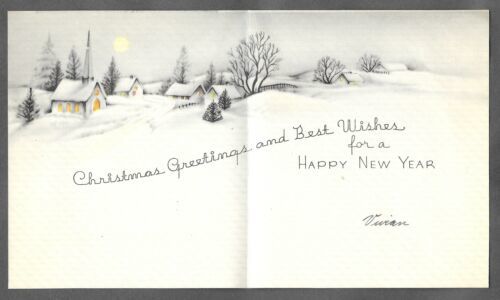 Christmas Greetings and Best Wishes
for a
HAPPY NEW YEAR
Vivian